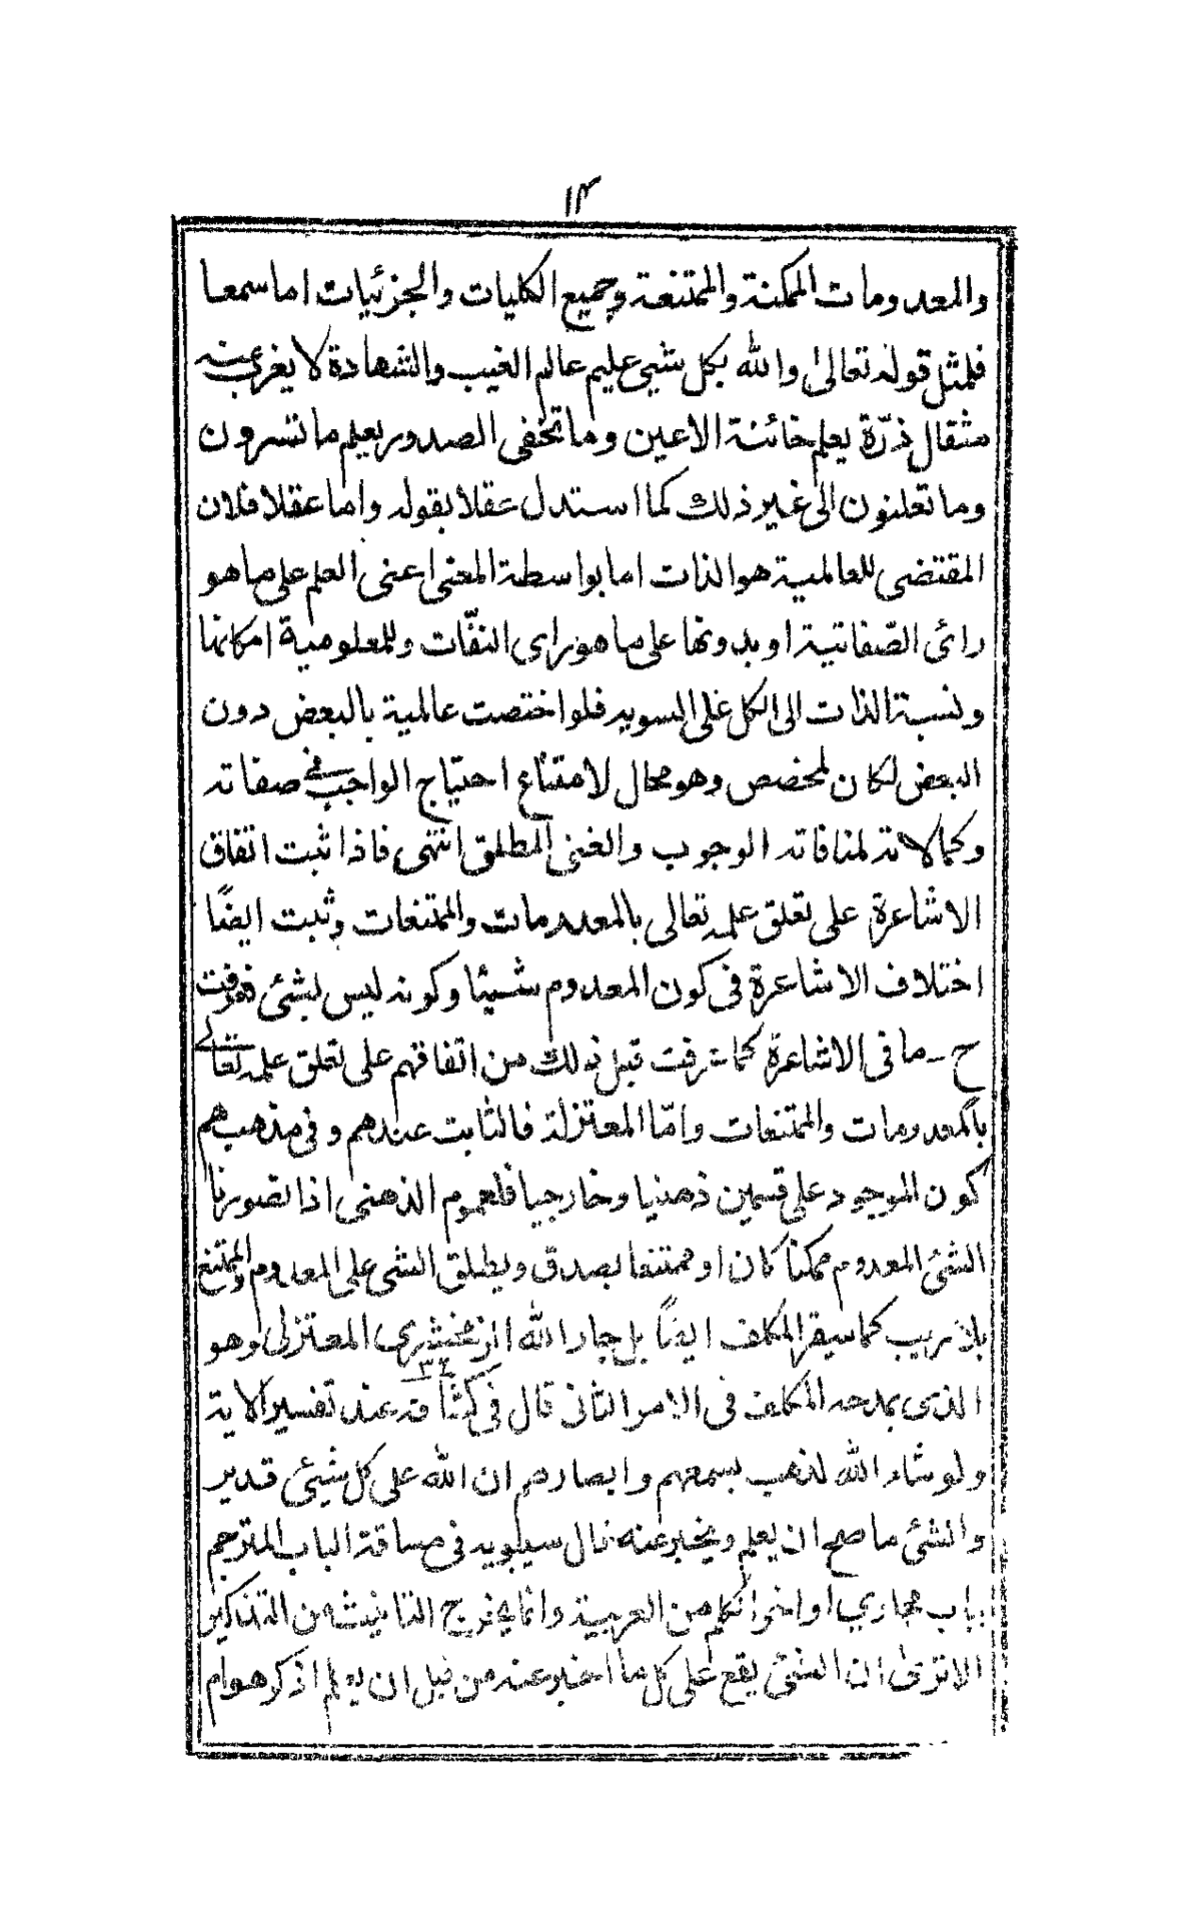 ١٣
والمعدومات الممكنة والممتنعة وجميع الكليات والجزئيات اما سمعا
فلمثل قوله تعالى والله بكل شيئ عليم عالم الغيب والشهادة لا يغرب عنه
مثقال ذرّة يعلم خائنة الاعين وما تخفى الصدور يعلم ما تسرون
وما تعلنون الى غير ذلك كما استدل عقلا بقوله واما عقلا فلان
المقتضى للعالمية هو الذات اما بواسطة المعنى اعنى العلم على ما هو
رائ الصّفاتية او بدونها على ما هو راى النفّات وللمعلومية امكانها
ونسبة الذات الى الكل على السويه فلو اختصت عالمية بالبعض دون
البعض لكان لمخصص وهو محال لامتناع احتياج الواجب فى صفاته
وكمالاته لمنافاته الوجوب والغنى المطلق انتهى فاذا ثبت اتفاق
الاشاعرة على تعلق علمه تعالى بالمعدومات والممتنعات وثبت ايضًا
اختلاف الاشاعرة فى كون المعدوم شيئا وكونه ليس بشئ فعرفت
ح ما فى الاشاعرة كما عرفت قبل ذلك من اتفاقهم على تعلق علمه تعالے
بالمعدومات والممتنعات وامّا المعتزلة فالثابت عندهم وفى مذهبهم
كون الموجود على قسمين ذهنيا وخارجيا فلعموم الذهنى اذا تصورنا
الشئ المعدوم ممكنا كان او ممتنعا يصدق ويطلق الشى على المعدوم والممتنع
بلا ريب كما سيقر المكلف ايضًا بل جار الله الزمخشرى المعتزلى وهو
الذى يمدحه المكلف فى الامر الثانى قال فى كشافه عند تفسير الاية
ولو شاء الله لذهب بسمعهم وابصارهم ان الله على كل شيئ قدير
والشئ ما صح ان يعلم ويخبر عنه قال سيبويه فى ساقة الباب المترجم
بباب مجارى اواخر الكلم من العربية وانما يخرج التانيث من التذكير
الا ترى ان الشئ يقع على كل ما اخبر عنه من قبل ان يعلم اذكر هو ام